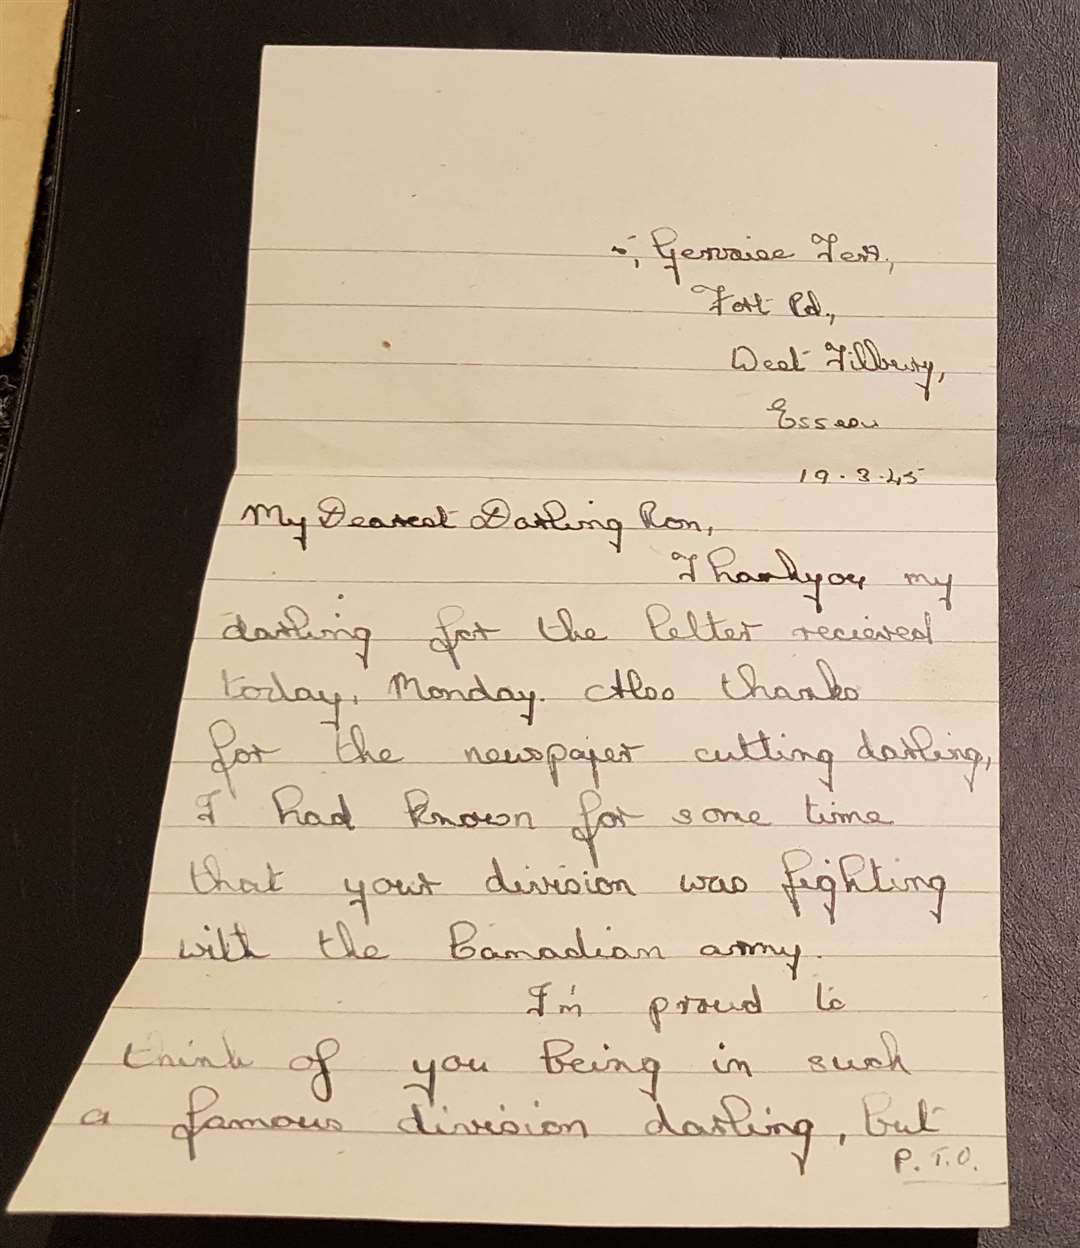 Gervaise Terr,
Fort Rd.,
West Tilbury,
Essex
19.3.45
My Dearest Darling Ron,
Thankyou my
darling for the letter recieved
today, Monday. Also thanks
for the newspaper cutting darling,
I had known for some time
that your division was fighting
with the Canadian army.
I'm proud to
think of you being in such
a famous division darling, but
P.T.O.